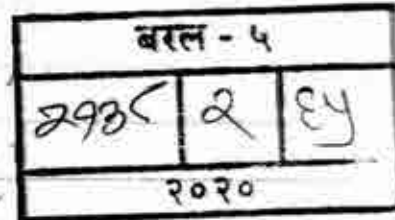 बरल - ५
२१३८ २ ६५
२०२०